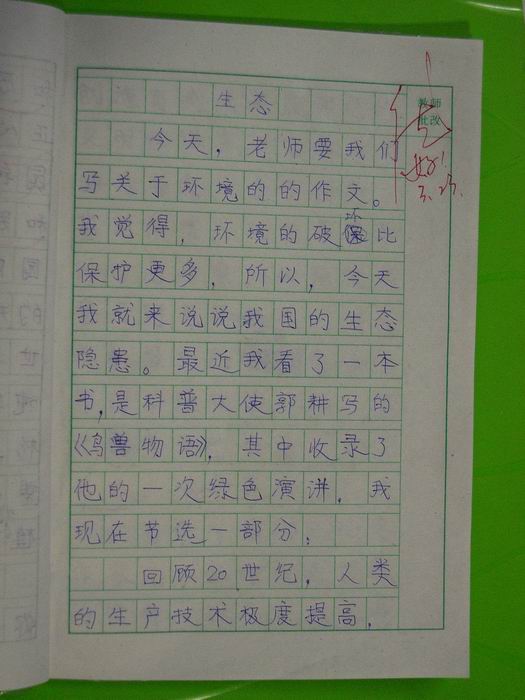 生态
教师
批改
今天，老师要我们
好！
写关于环境的的作文。
3.23.
我觉得，环境的破坏比
保护更多，所以，今天
我就来说说我国的生态
隐患。最近我看了一本
书，是科普大使郭耕写的
《鸟兽物语》，其中收录了
他的一次绿色演讲，我
现在节选一部分：
回顾20世纪，人类
的生产技术极度提高，